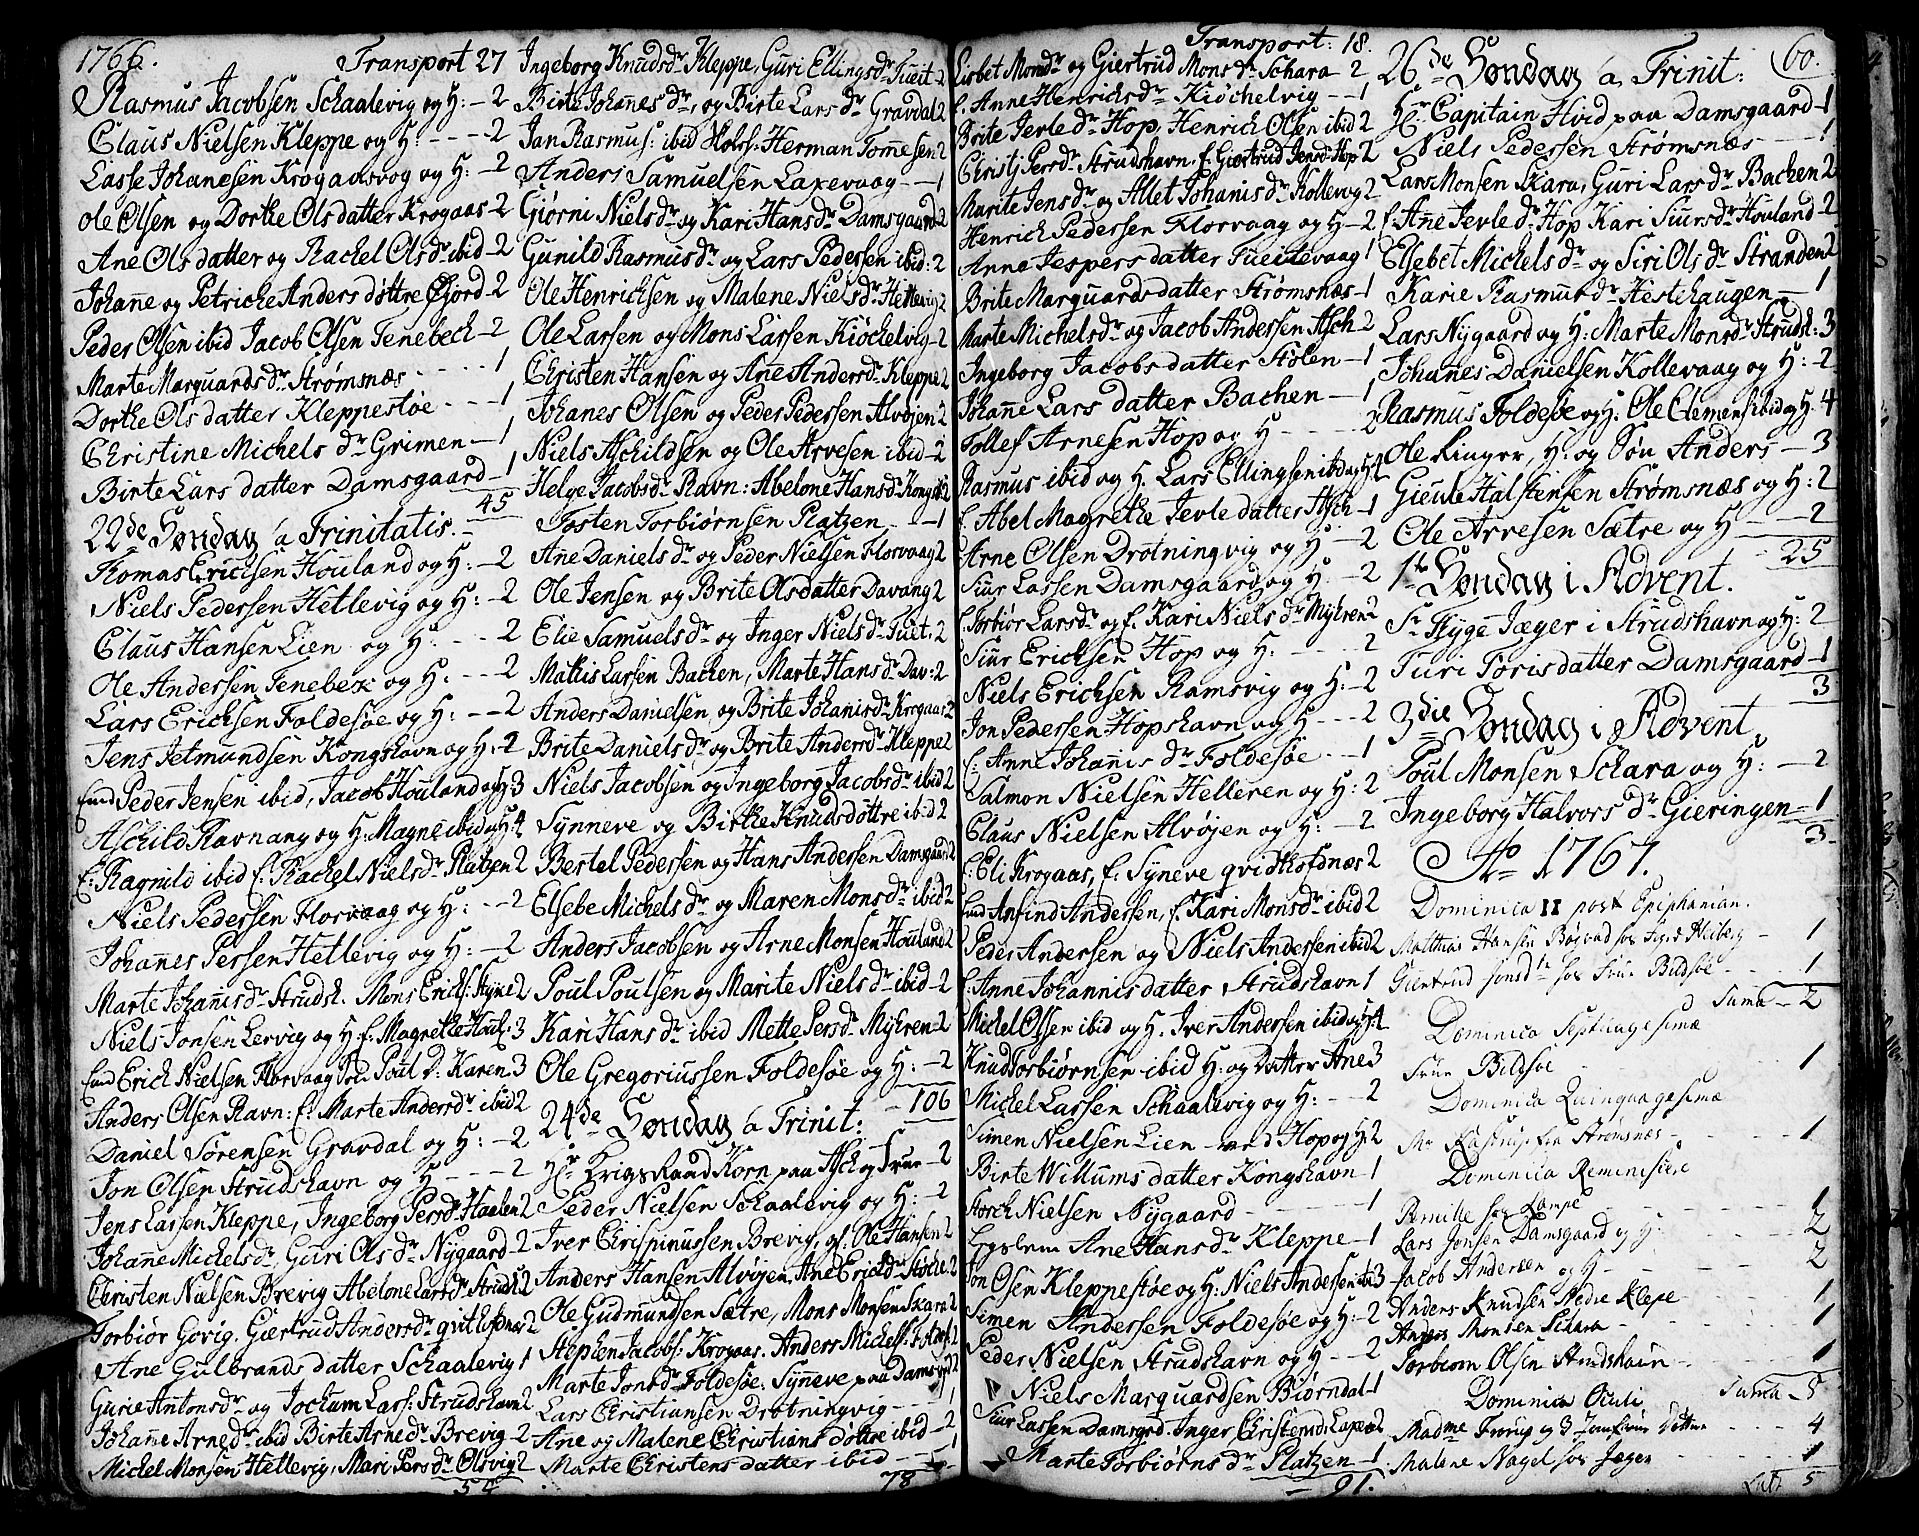 1766.
Transport 27
Rasmus Jacobsen Schaalevig og H: - 2
Claus Nielsen Kleppe og H: - - - 2
Lasse Johanesen Krogaasvog og H: - 2
Ole Olsen og Dorthe Olsdatter Krogaas 2
Ane Olsdatter og Rachel Olsdr ibid - 2
Johanne og Petriche Anders døttre Fjord - 2
Peder Olsen ibid Jacob Olsen Tenebech - 2
Marte Marquards dr Strømsnæs - - - - 1
Dorthe Ols datter Kleppestøe - - - 1
Christine Michels dr Grimen - 1
Birte Lars datter Damsgaard - 1
45
22de Søndag a Trinitatis.
Thomas Ericksen Houland og H: - 2
Niels Pedersen Hetlevig og H: - 2
Claus Hansen Lien og H: - - - 2
Ole Andersen Tenebex og H: - - 2
Lars Ericksen Foldesøe og H: - - 2
Jens Jetmundsen Kongshavn og H: - 2
Peder Jensen ibid, Jacob Houland og H: 3
Aschild Ravnang og H: Magne ibid og H: 4
f: Ragnild ibid f: Rachel Niels dr Platzen 2
Niels Pedersen Florvaag og H: - - 2
Johannes Persen Hetlevig og H: - 2
Marte Johanis dr Strudsh. Mons Ericks: Styve 2
Niels Jonsen Lervig og H f: Magrethe Houl: 3
Erich Nielsen Florvaag Poul D: Karen 3
Anders Olsen Ravn: f: Marte Andersdr ibid 2
Daniel Sørensen Gravdal og H: - 2
Jon Olsen Strudshavn og H - - - 2
Jens Larsen Kleppe, Ingeborg Persdr Haalen 2
Johanne Michelsdr, Guri Ols dr Nygaard - 2
Christen Nielsen Brevig Abelone Larsdr Strudsh 2
Torbiør Govig. Giertrud Andersdr qvithofdnæs 2
Ane Gulbrands datter Schaalevig 1
Gurie Antonsdr og Jochum Lars: Strudshavn 2
Johanne Arnedr ibid Birte Arnedr Brevig - 2
Michel Monsen Hetlevig, Mari Pers dr Olsvig 2
54
Ingeborg Knudsdr Kleppe, Guri Ellingsdr Tueit - 2
Birte Johanes dr, og Birte Lars dr Gravdal 2
Jan Rasmus: ibid Herman Tomesen 2
Anders Samuelsen Laxevaag - - 1
Giørni Nielsdr og Kari Hansdr Damsgaard 2
Gunild Rasmusdr og Lars Pedersen ibid: 2
Ole Henrichsen og Malene Niels dr Hetlevig 2
Ole Larsen og Mons Larsen Kiøchelvig - 2
Christen Hansen og Ane Andersdr Kleppe 2
Johanes Olsen og Peder Pedersen Alvøjen 2
Niels Aschildsen og Ole Arvesen ibid - 2
Helge Jacobsdr Ravn: Abelone Hansdr Kongsh 2
Tosten Torbiørnsen Platzen - - 1
Ane Daniels dr og Peder Nielsen Florvaag 2
Ole Jensen og Brite Olsdatter Davang 2
Elie Samuelsdr og Inger Niels dr Tueit: 2
Mathis Larsen Bachen, Marte Hans dr Dav: 2
Anders Danielsen, og Brite Johanisdr Krogaas 2
Brite Danielsdr og Brite Andersdr Kleppe 2
Niels Jacobsen og Ingeborg Jacobsdr ibid 2
Synneve og Birthe Knudsdøttre ibid 2
Bertel Pedersen og Hans Andersen Damsgaard 2
Elsebe Michels dr og Maren Mons dr ibid 2
Anders Jacobsen og Arne Monsen Houland 2
Poul Poulsen og Marite Niels dr ibid - 2
Kari Hans dr ibid Mette Persdr Myhren - 2
Ole Gregoriussen Foldesøe og H: - 2
106
24de Søndag a Trinit:
Hr Krigs Raad Korn paa Asch og Frue - 2
Peder Nielsen Schaalevig og H: - 2
Iver Chrispinussen Brevig, gl: Ole Hansen 2
Anders Hansen Alvøjen, Ane Ericksdr 2
Ole Gudmundsen Sætre, Mons Monsen Skara 2
Stephen Jacobs: Krogaas. Anders Michels: Foldes: 2
Marte Jonsdr Foldesøe: Syneve paa Damsgrd 2
Lars Christiansen Drotningvig - - - 1
Ane og Malene Christians døttre ibid - 2
Marte Christens datter ibid - - - 1
78
Transport: 18.
Lisbet Monsdr og Giertrud Mons dr Schara - 2
f. Anne Henrichsdr Kiøchelvig - - 1
Brite Jerledr Hop, Henrich Olsen ibid 2
Christj Persdr Strudshavn. f. Giertrud Jensdr Hop 2
Marite Jensdr og Allet Johanisdr Kollevog 2
Henrich Pedersen Florvaag og H - 2
Anne Jespers datter Tueitevaag 1
Brite Marquardsdatter Strømsnæs - 1
Marte Michelsdr og Jacob Andersen Asch - 2
Ingeborg Jacobsdatter Stolen - 1
Johanne Lars datter Bachen - 1
Tollef Arnesen Hop og H - - - - 2
Rasmus ibid og H. Lars Ellingsen ibid og H: 4
f. Abel Magrethe Jevle datter Asch - 1
Arne Olsen Drotningvig og H: - 2
Siur Lassen Damsgaard og H: - 2
f. Torbiør Larsdr og f. Kari Niels dr Myhren 2
Siur Ericksen Hop og H: - - - - 2
Niels Ericksen Ramsvig og H: - 2
Jon Pedersen Hopshavn og H - - - 2
f: Anne Johanis dr Foldesøe - - - 1
Salmon Nielsen Helleren og H: 2
Claus Nielsen Alvøjen og H: - 2
f. Eli Krogaas, f. Syneve qvithofdnæs 2
Anfind Andersen, f. Kari Monsdr ibid 2
Peder Andersen og Niels Andersen ibid 2
f. Anne Johannisdatter Strudshavn 1
Michel Olsen ibid og H. Iver Andersen ibid og H: 4
Knud Torbiørnsen ibid H: og Datter Ane 3
Michel Larsen Schaalevig og H: - - 2
Simen Nielsen Lien ved Hop og H: 2
Birte Willums datter Kongshavn - 1
Storch Nielsen Nygaard - - - - - 1
Ane Hans dr Kleppe - 1
Jon Olsen Kleppestøe og H: Niels Andersen 3
Simen Andersen Foldesøe og H: - 2
Peder Nielsen Strudshavn og H - - 2
Niels Marquardsen Biørndal - 1
Siur Lassen Damsgrd. Inger Christensdr Laxev: 2
Marte Torbiørns dr Platzen - 1
91.
60.
26de Søndag a Trinit:
Hr Capitain Hvid paa Damsgaard - 1
Niels Pedersen Strømsnæs - - - 1
Lars Monsen Skara, Guri Lars dr Bachen 2
f: Ane Jevle dr Hop Kari Siursdr Houland - 2
Elsebet Michels dr og Siri Ols dr Stranden 2
Karie Rasmusdr Hestehaugen - - 1
Lars Nygaard og H: Marte Monsdr Strudsh: 3
Johanes Danielsen Kollevaag og H: - 2
Rasmus Foldesøe og H: Ole Clemens: ibid og H: 4
Ole Ringer, H: og Søn Anders - 3
Gieule Halstensen Strømsnæs og H: 2
Ole Arvesen Sætre og H - - - 2
25
1te Søndag i Advent.
Sr Thyge Jæger i Strudshavn og H: 2
Turi Torisdatter Damsgaard - 1
3
3die Søndag i Advent.
Poul Monsen Schara og H: - 2
Ingeborg Halvors dr Gieringen - 1
3.
Ao 1767.
Dominica II post Epiphanian.
Matthias Hansen Bøgvad hos Sigrd Heiberg - 1
Giertrud Jonsdtr hos Frue Bildsøe - - - 1
Suma - 2
Dominica Septuagesimæ
Frue Bildsøe - - - 1
Dominica Quinquagesimæ
Mr Kastrup fra Strømsnæs - - - - 1
Dominica Reminisere
Pernille hos Lampe - - - - 1
Lars Jonsen Damsgaard og H: - - 2
Jacob Andersen og H - - - - 2
Anders Knudsen Nedre Klepe - - - 1
Anders Monsen Schara - - - - 1
Torbiorn Olsen Strudshavn - - - 1
Dominica Oculi
Suma - 5
Madme Frorup og 3 Jomfruer - - - 4
Malene Nagel hos Jæger - - - - 1
Lat: 5